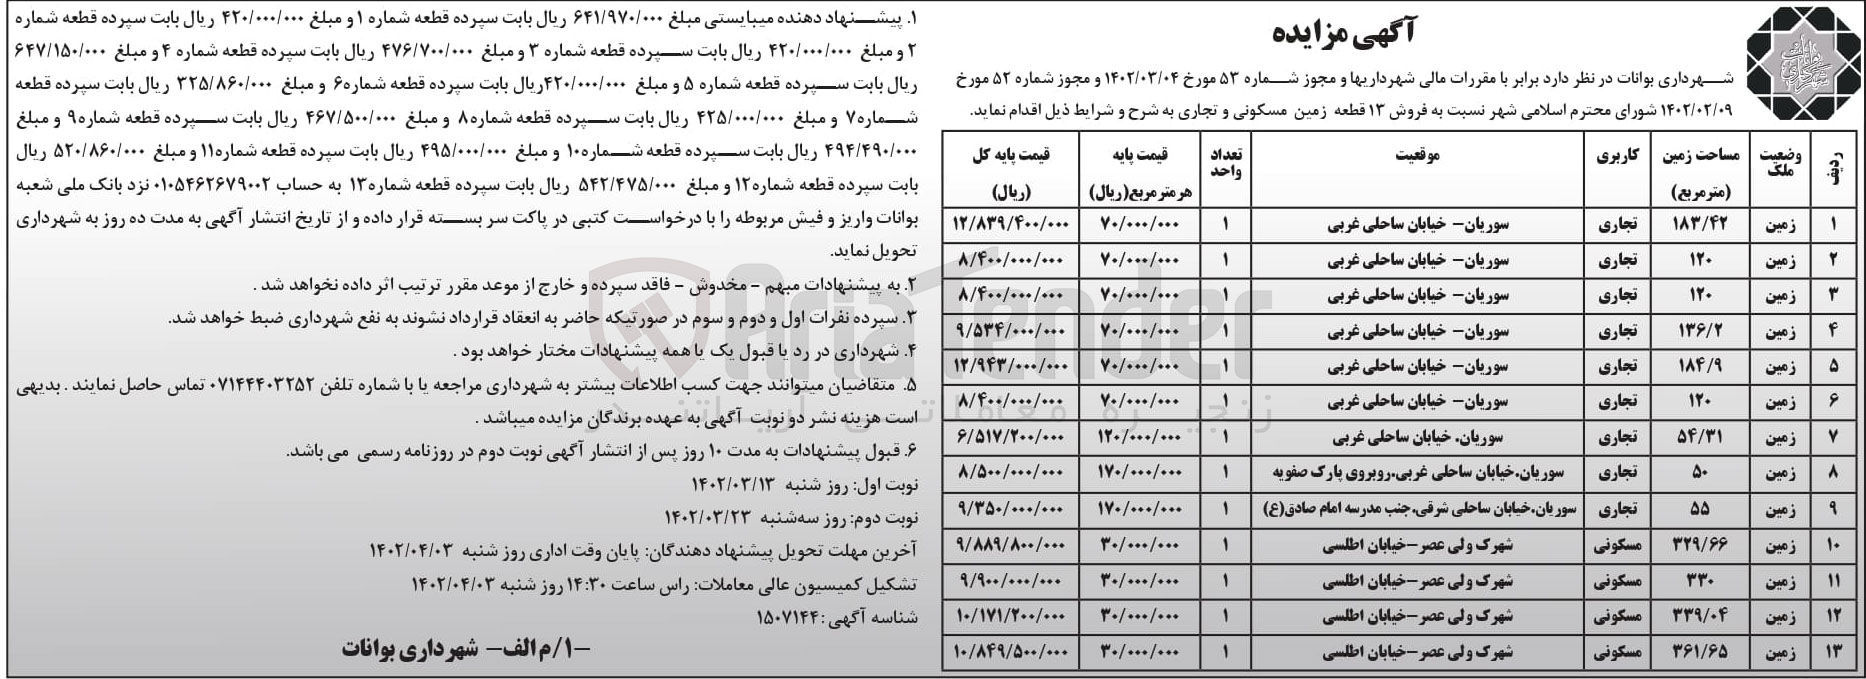 آگهی مزایده
شهرداری بوانات در نظر دارد برابر با مقررات مالی شهرداریها و مجوز شماره ۵۳ مورخ ۱۴۰۲/۰۳/۰۴ و مجوز شماره ۵۲ مورخ
۱۴۰۲/۰۲/۰۹ شورای محترم اسلامی شهر نسبت به فروش ۱۳ قطعه زمین مسکونی و تجاری به شرح و شرایط ذیل اقدام نماید.
ردیف وضعیت ملک مساحت زمین (مترمربع) کاربری موقعیت تعداد واحد قیمت پایه هرمترمربع(ریال) قیمت پایه کل (ریال)
۱ زمین ۱۸۳/۴۲ تجاری سوریان- خیابان ساحلی غربی ۱ ۷۰/۰۰۰/۰۰۰ ۱۲/۸۳۹/۴۰۰/۰۰۰
۲ زمین ۱۲۰ تجاری سوریان- خیابان ساحلی غربی ۱ ۷۰/۰۰۰/۰۰۰ ۸/۴۰۰/۰۰۰/۰۰۰
۳ زمین ۱۲۰ تجاری سوریان- خیابان ساحلی غربی ۱ ۷۰/۰۰۰/۰۰۰ ۸/۴۰۰/۰۰۰/۰۰۰
۴ زمین ۱۳۶/۲ تجاری سوریان- خیابان ساحلی غربی ۱ ۷۰/۰۰۰/۰۰۰ ۹/۵۳۴/۰۰۰/۰۰۰
۵ زمین ۱۸۴/۹ تجاری سوریان- خیابان ساحلی غربی ۱ ۷۰/۰۰۰/۰۰۰ ۱۲/۹۴۳/۰۰۰/۰۰۰
۶ زمین ۱۲۰ تجاری سوریان- خیابان ساحلی غربی ۱ ۷۰/۰۰۰/۰۰۰ ۸/۴۰۰/۰۰۰/۰۰۰
۷ زمین ۵۴/۳۱ تجاری سوریان. خیابان ساحلی غربی ۱ ۱۲۰/۰۰۰/۰۰۰ ۶/۵۱۷/۲۰۰/۰۰۰
۸ زمین ۵۰ تجاری سوریان.خیابان ساحلی غربی.روبروی پارک صفویه ۱ ۱۷۰/۰۰۰/۰۰۰ ۸/۵۰۰/۰۰۰/۰۰۰
۹ زمین ۵۵ تجاری سوریان.خیابان ساحلی شرقی.جنب مدرسه امام صادق(ع) ۱ ۱۷۰/۰۰۰/۰۰۰ ۹/۳۵۰/۰۰۰/۰۰۰
۱۰ زمین ۳۲۹/۶۶ مسکونی شهرک ولی عصر-خیابان اطلسی ۱ ۳۰/۰۰۰/۰۰۰ ۹/۸۸۹/۸۰۰/۰۰۰
۱۱ زمین ۳۳۰ مسکونی شهرک ولی عصر-خیابان اطلسی ۱ ۳۰/۰۰۰/۰۰۰ ۹/۹۰۰/۰۰۰/۰۰۰
۱۲ زمین ۳۳۹/۰۴ مسکونی شهرک ولی عصر-خیابان اطلسی ۱ ۳۰/۰۰۰/۰۰۰ ۱۰/۱۷۱/۲۰۰/۰۰۰
۱۳ زمین ۳۶۱/۶۵ مسکونی شهرک ولی عصر-خیابان اطلسی ۱ ۳۰/۰۰۰/۰۰۰ ۱۰/۸۴۹/۵۰۰/۰۰۰
۱. پیشنهاد دهنده میبایستی مبلغ ۶۴۱/۹۷۰/۰۰۰ ریال بابت سپرده قطعه شماره ۱ و مبلغ ۴۲۰/۰۰۰/۰۰۰ ریال بابت سپرده قطعه شماره
۲ و مبلغ ۴۲۰/۰۰۰/۰۰۰ ریال بابت سپرده قطعه شماره ۳ و مبلغ ۴۷۶/۷۰۰/۰۰۰ ریال بابت سپرده قطعه شماره ۴ و مبلغ ۶۴۷/۱۵۰/۰۰۰
ریال بابت سپرده قطعه شماره ۵ و مبلغ ۴۲۰/۰۰۰/۰۰۰ریال بابت سپرده قطعه شماره۶ و مبلغ ۳۲۵/۸۶۰/۰۰۰ ریال بابت سپرده قطعه
شماره۷ و مبلغ ۴۲۵/۰۰۰/۰۰۰ ریال بابت سپرده قطعه شماره۸ و مبلغ ۴۶۷/۵۰۰/۰۰۰ ریال بابت سپرده قطعه شماره۹ و مبلغ
۴۹۴/۴۹۰/۰۰۰ ریال بابت سپرده قطعه شماره۱۰ و مبلغ ۴۹۵/۰۰۰/۰۰۰ ریال بابت سپرده قطعه شماره۱۱ و مبلغ ۵۲۰/۸۶۰/۰۰۰ ریال
بابت سپرده قطعه شماره۱۲ و مبلغ ۵۴۲/۴۷۵/۰۰۰ ریال بابت سپرده قطعه شماره۱۳ به حساب ۰۱۰۵۴۶۲۶۷۹۰۰۲ نزد بانک ملی شعبه
بوانات واریز و فیش مربوطه را با درخواست کتبی در پاکت سر بسته قرار داده و از تاریخ انتشار آگهی به مدت ده روز به شهرداری
تحویل نماید.
۲. به پیشنهادات مبهم - مخدوش - فاقد سپرده و خارج از موعد مقرر ترتیب اثر داده نخواهد شد .
۳. سپرده نفرات اول و دوم و سوم در صورتیکه حاضر به انعقاد قرارداد نشوند به نفع شهرداری ضبط خواهد شد.
۴. شهرداری در رد یا قبول یک یا همه پیشنهادات مختار خواهد بود .
۵. متقاضیان میتوانند جهت کسب اطلاعات بیشتر به شهرداری مراجعه یا با شماره تلفن ۰۷۱۴۴۴۰۳۲۵۲ تماس حاصل نمایند . بدیهی
است هزینه نشر دو نوبت آگهی به عهده برندگان مزایده میباشد .
۶. قبول پیشنهادات به مدت ۱۰ روز پس از انتشار آگهی نوبت دوم در روزنامه رسمی می باشد.
نوبت اول: روز شنبه ۱۴۰۲/۰۳/۱۳
نوبت دوم: روز سه‌شنبه ۱۴۰۲/۰۳/۲۳
آخرین مهلت تحویل پیشنهاد دهندگان: پایان وقت اداری روز شنبه ۱۴۰۲/۰۴/۰۳
تشکیل کمیسیون عالی معاملات: راس ساعت ۱۴:۳۰ روز شنبه ۱۴۰۲/۰۴/۰۳
شناسه آگهی :۱۵۰۷۱۴۴
۱/م الف- شهرداری بوانات-
AriaTender